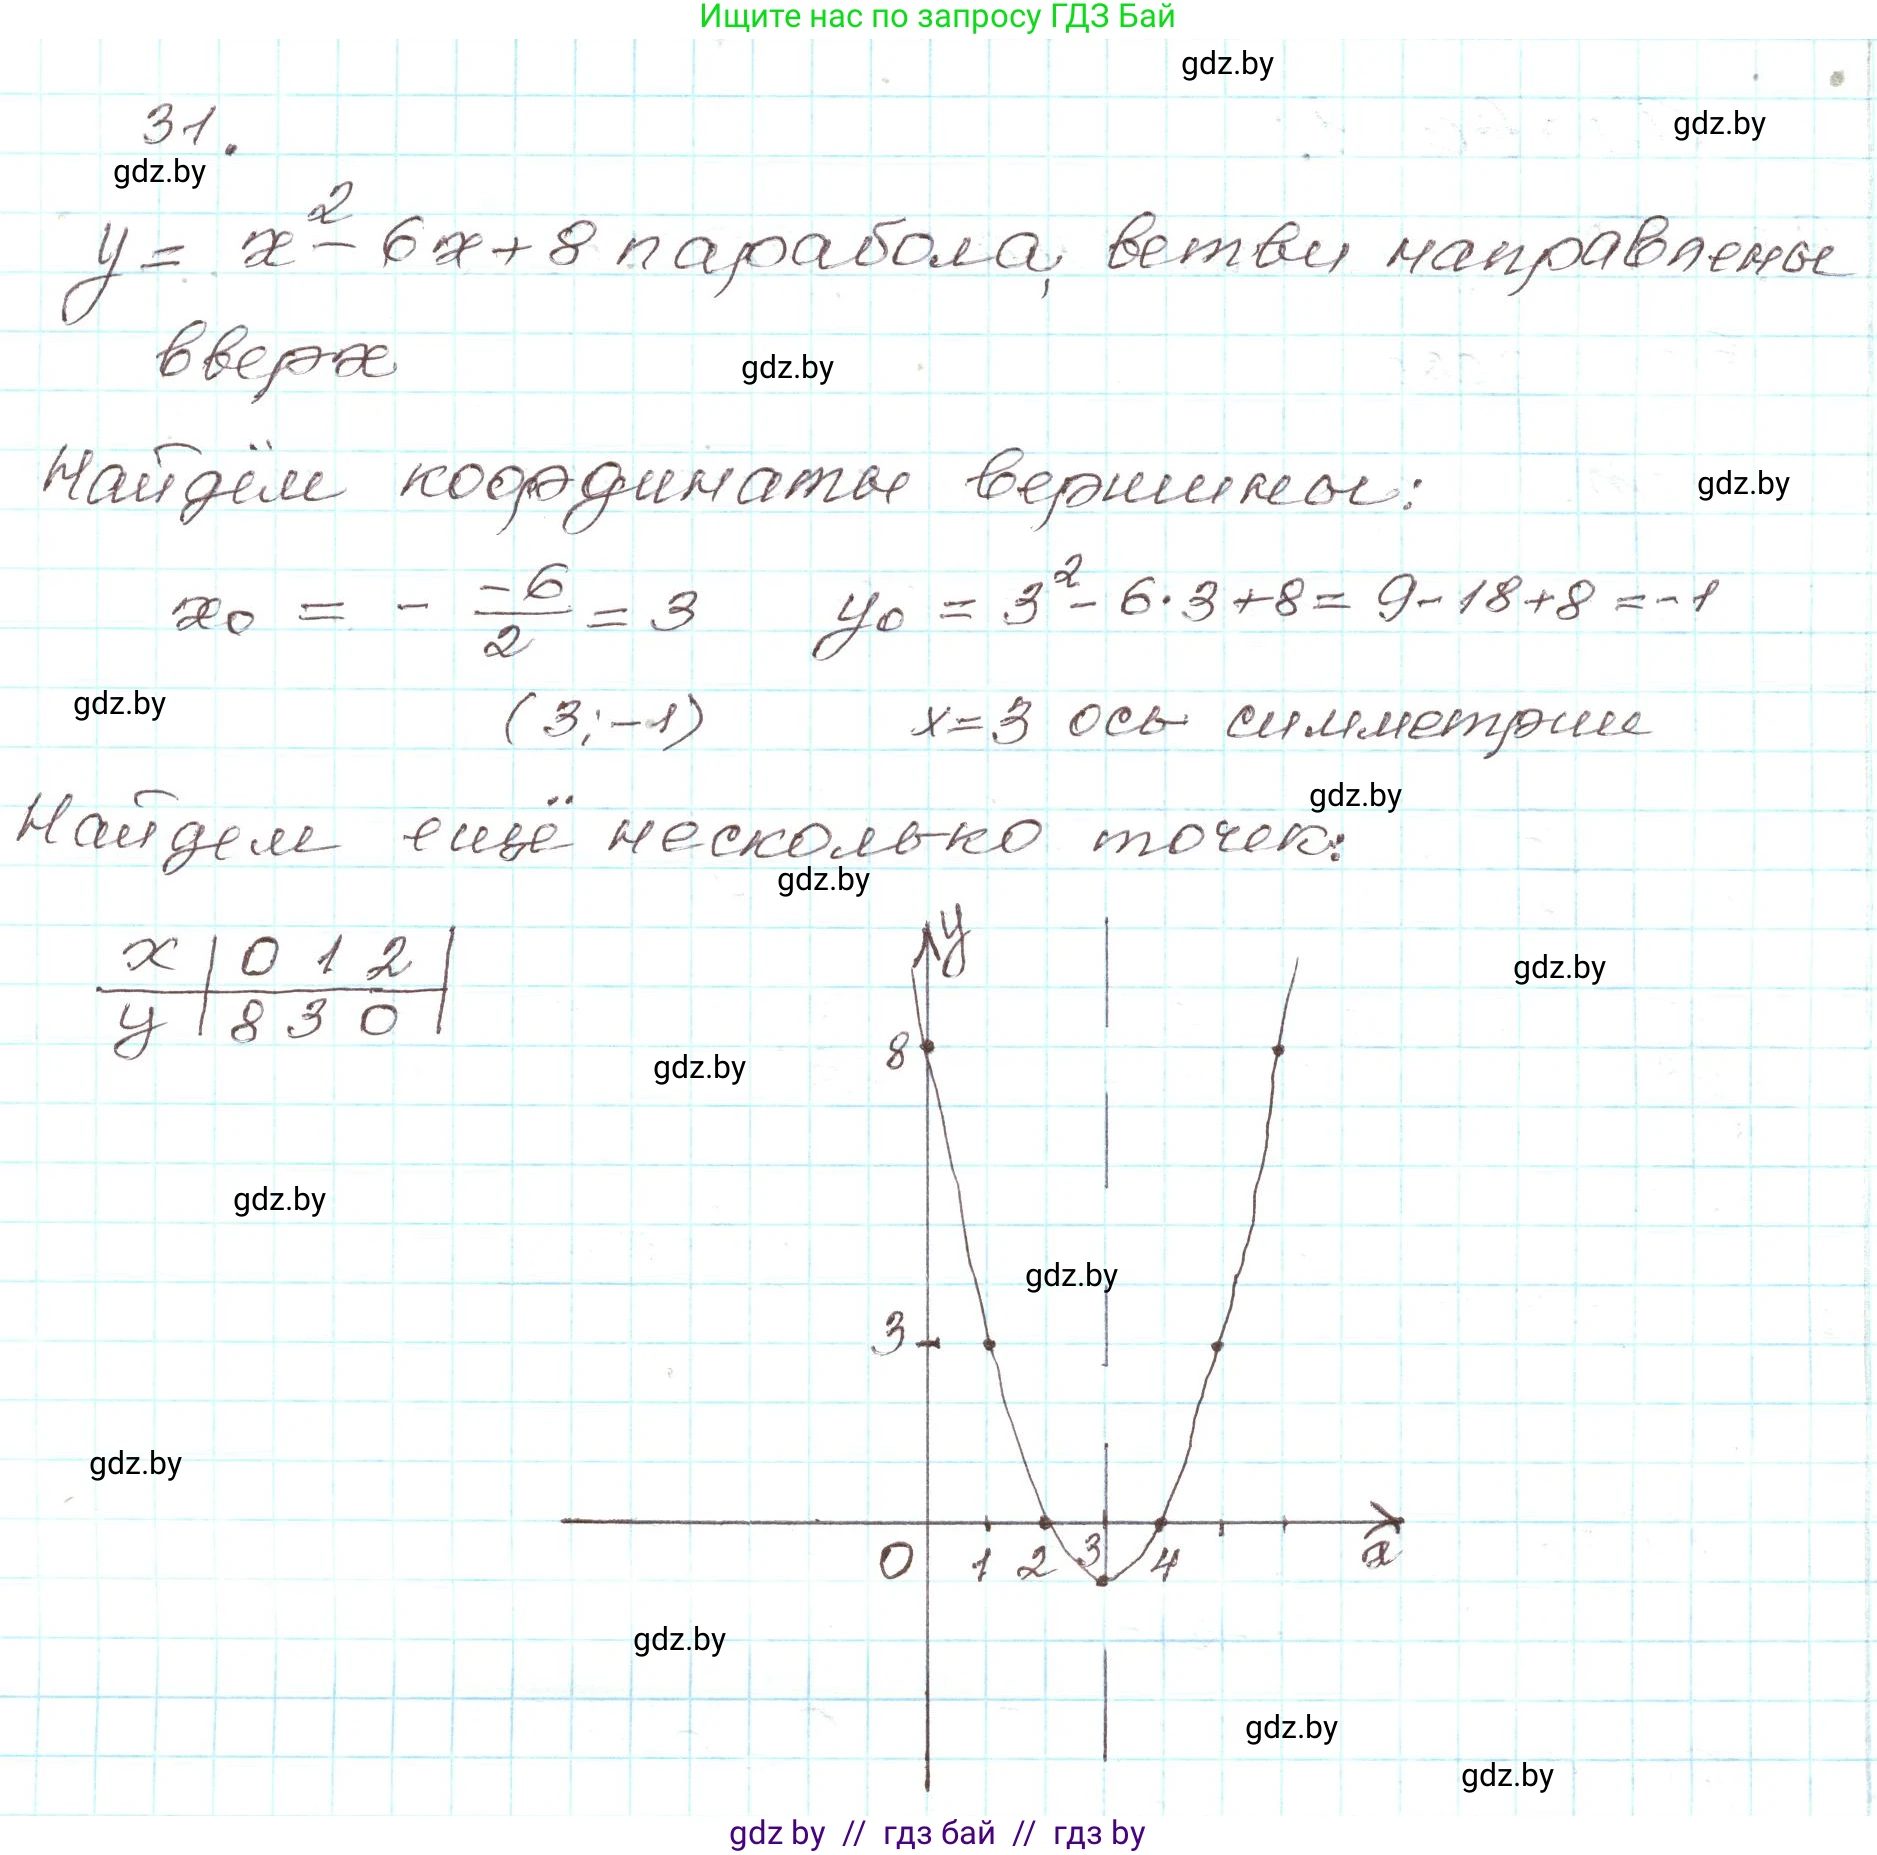 Ищите нас по запросу ГДЗ Бай
gdz.by
gdz.by
31.
gdz.by
y = x² - 6x + 8 парабола, ветви направлены
вверх
gdz.by
Найдём координаты вершины:
gdz.by
x₀ = - -6/2 = 3 y₀ = 3² - 6·3 + 8 = 9 - 18 + 8 = -1
gdz.by
(3; -1) x = 3 ось симметрии
gdz.by
Найдем ещё несколько точек:
gdz.by
x | 0 1 2 |
y | 8 3 0 |
y
gdz.by
8
gdz.by
gdz.by
gdz.by
3
gdz.by
0 1 2 3 4 x
gdz.by
gdz.by
gdz.by
gdz by // гдз бай // гдз by